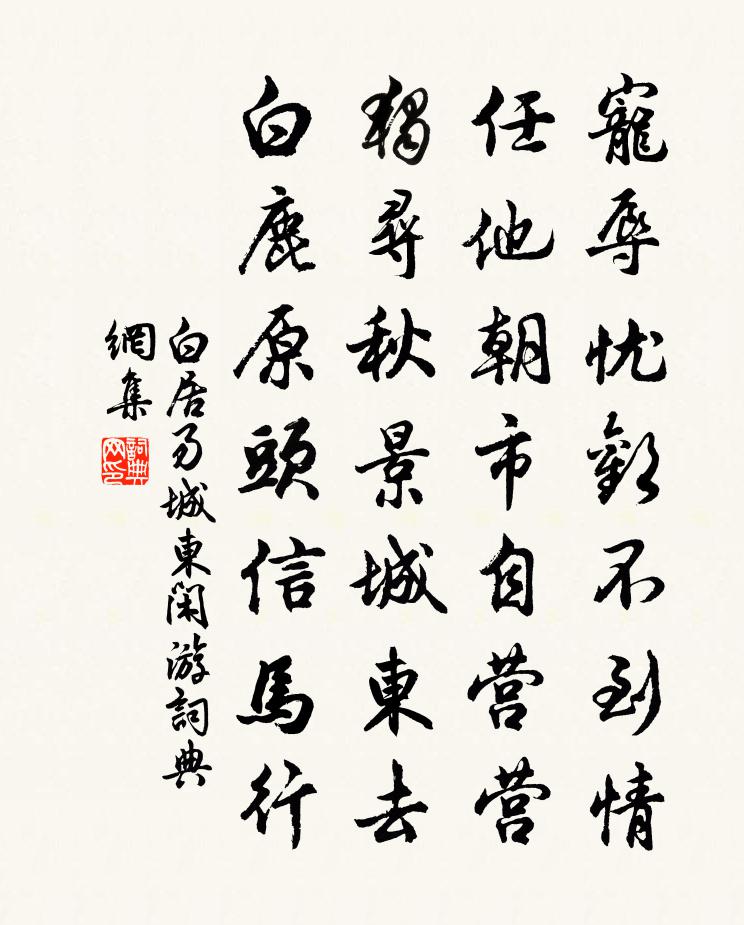 寵辱忧歡不到情
任他朝市自营营
獨尋秋景城東去
白鹿原頭信馬行
白居易城東閑游詞典
網集
詞典
网印